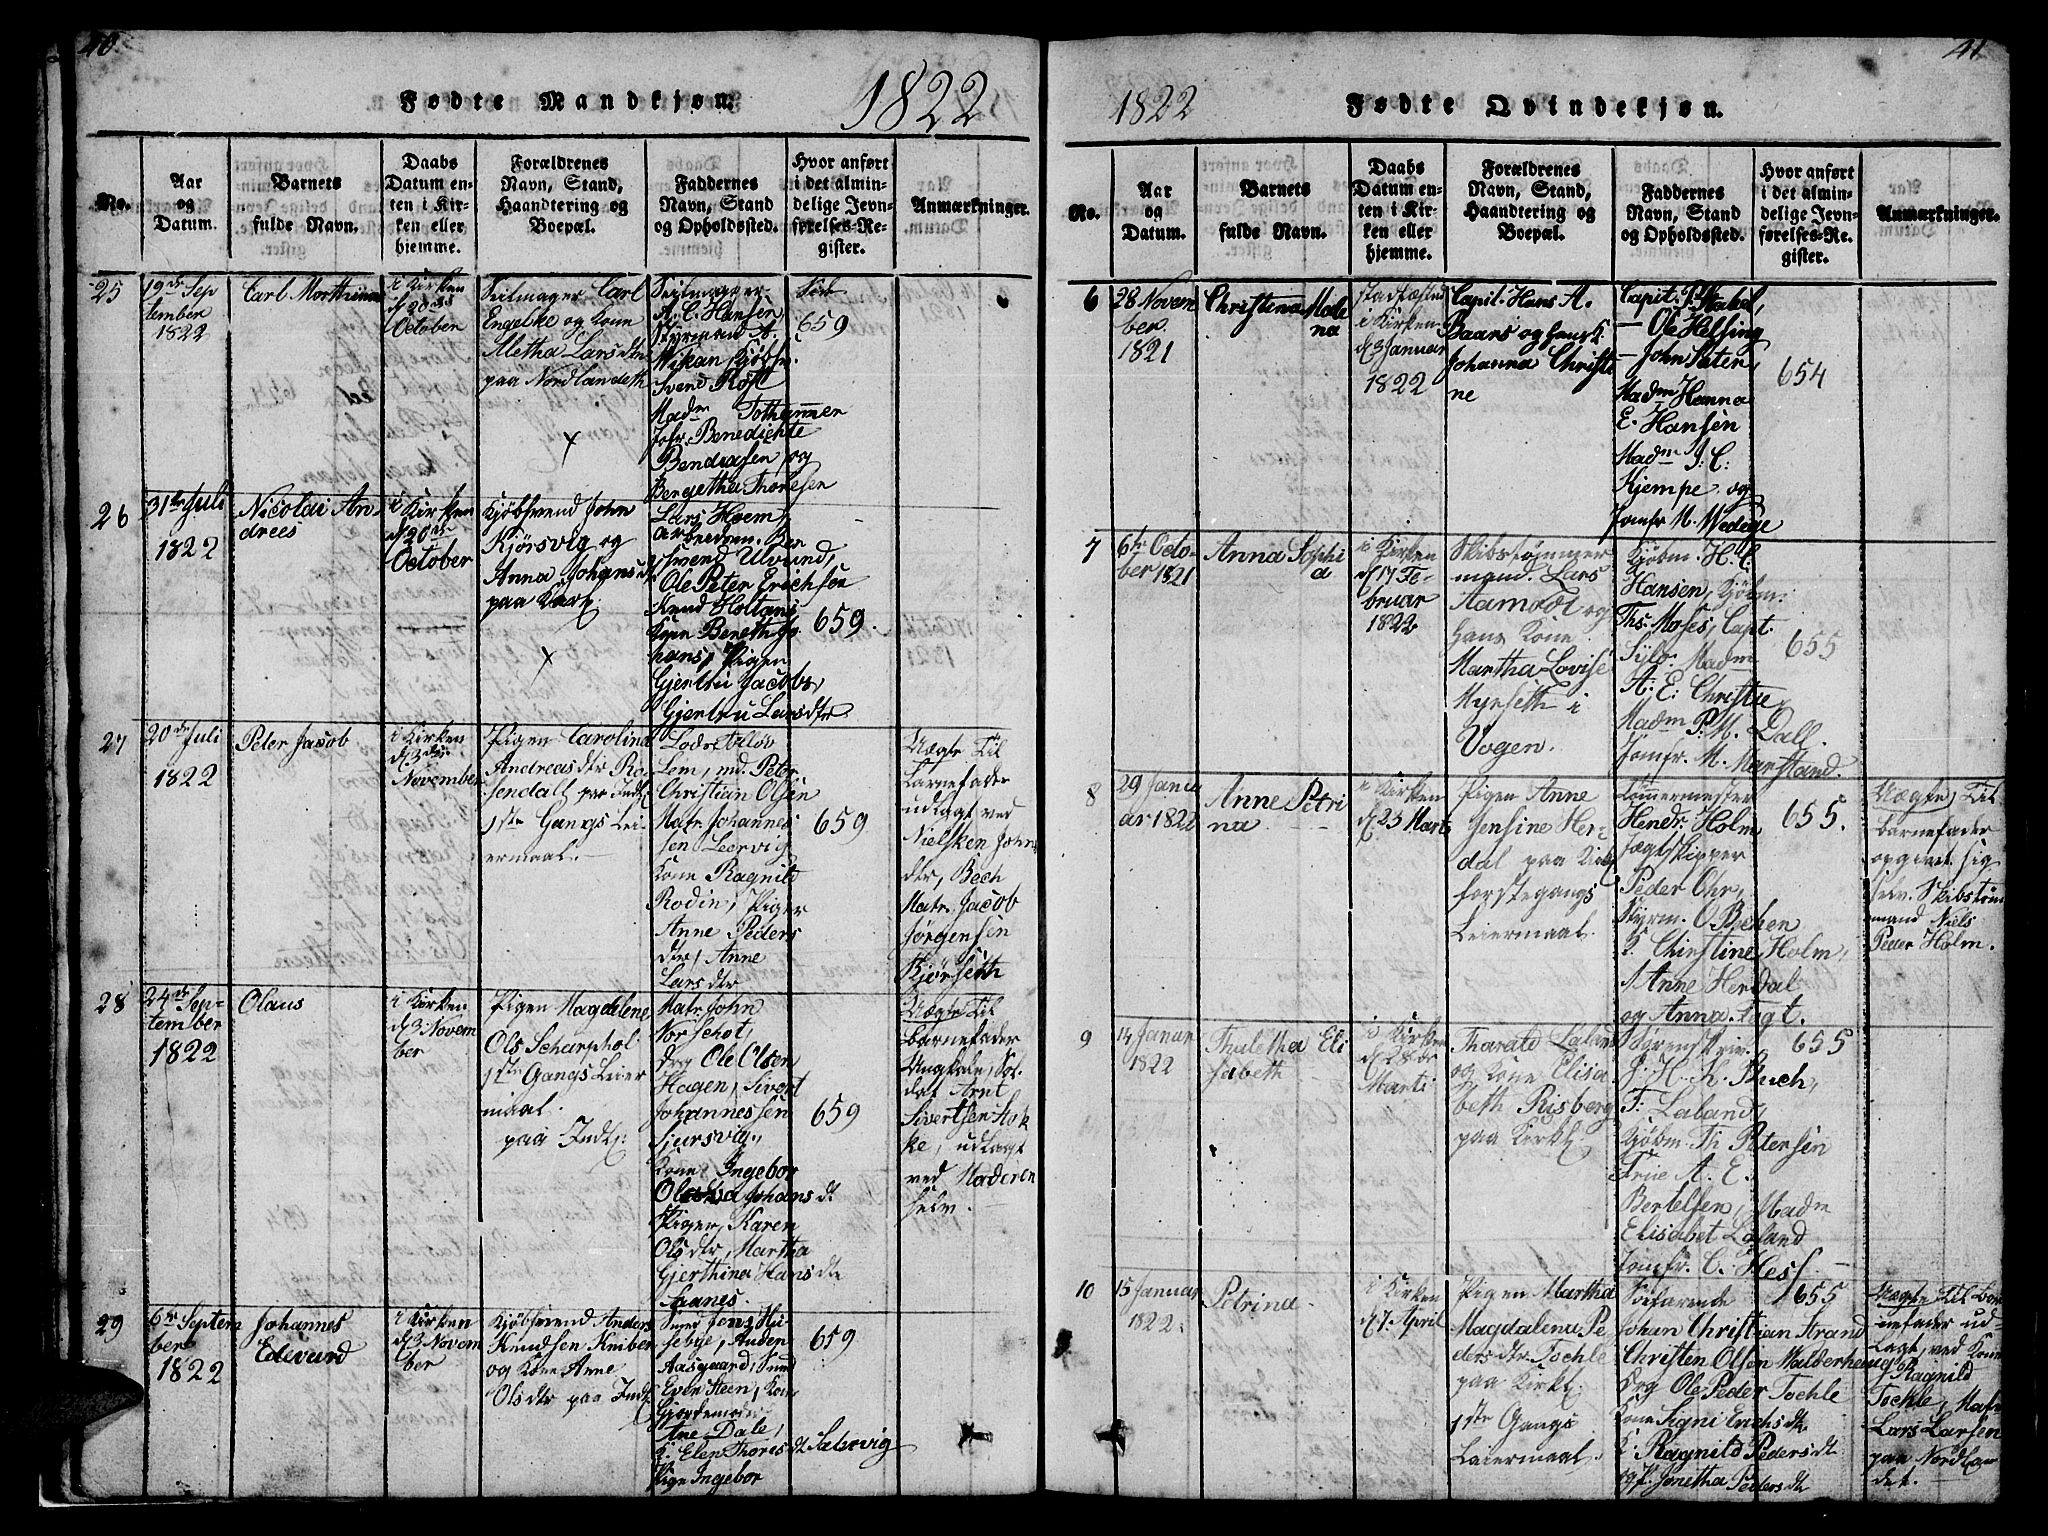 40
Fødte Mandkjøn.
1822
No.
Aar
og
Datum.
Barnets
fulde Navn.
Daabs
Datum en-
ten i Kir-
ken eller
hjemme.
Forældrenes
Navn, Stand,
Haandtering og
Boepæl.
Faddernes
Navn, Stand
og Opholdssted.
Hvor anført
i det almin-
delige Jevn-
førelses-Re-
gister.
Anmærkninger.
25
19de Sep
tember
1822
Carl Morthinus
i Kirken
d 20de
October
Seilmager Carl
Engelke og Kone
Aletha Larsdtr
paa Nordlandeth
Seilmager
A. C. Hansen,
Styrmand A.
Wikan Kjøbsv.
Svend Röst
Madm Tothammer
Jofr. Benedichte
Bendixsen og
Bergetha Thoresen
Side
659
26
31te Juli
1822
Nicolai An-
drees
i Kirken
d 20de
October
Kjøbsvend John
Kjörsvig og
Anna Johansdt
paa Kirkl.
Lars Hoem,
Arbeidsm. Ber
Svend Ulvund,
Ole Peter Erichsen
Knud Holtans
Kone Bereth Jo
hans, Pigen
Gjertru Jacobs,
Gjertru Larsdtr
659.
27
20de Juli
1822
Peter Jacob
i Kirken
d 3die
November
Pigen Carolina
Andreasdtr Ro-
sendall paa Indl.
1ste Gangs Lei-
ermaal.
Lods
Lem, md. Peter
Christian Olsen
Matr. Johannes-
sen Leervig
Kone Ragnild
Rodin, Piger
Anne Peders
dtr, Anne
Larsdtr
659
Uægte Til
Barnefader
udlagt ved
Nielsken Johns
dtr, Bech
Matr. Jacob
Jørgensen
Bjørseth
28
24de Sep-
tember
1822
Olaus
i Kirken
d 3 Novem
ber
Pigen Magdelene
Ols Scharphol
1ste Gangs Leier
maal.
paa Indl:
Matr. John
Norschot,
drg Ole Olsen
Hagen, Sivert
Johannessen
Sjursvig,
Kone Ingebor
Ols Johansdt.
Piger, Karen
Olsdtr, Martha
Gjerthina Hansdt
Saanes.
659
Uægte Til
Barnefader
Ungkale, Sol.
dat Arnt
Sivertsen Hok
ke, udlagt
ved Moderen
selv.
29
6te Septem
ber
1822
Johannes
Edevard
i Kirken
d 3 Novem
ber
Kjøbsvend Anders
Knudsen Kniber
og Kone Anne
Olsdtr paa Indl.
Smed Jens Hu
sebye, Anden
Aasgaard, Smed
Even Steen, Kone
Gjordemoder
Ane Dale,
K. Elen Thoresdt Sætervig
Pige Ingebor
659
41
1822
Fødte Qvindekjøn.
No.
Aar
og
Datum.
Barnets
fulde Navn.
Daabs
Datum en-
ten i Kir-
ken eller
hjemme.
Forældrenes
Navn, Stand,
Haandtering og
Boepæl.
Faddernes
Navn, Stand
og Opholdssted.
Hvor anført
i det almin-
delige Jevn-
førelses-Re-
gister.
Anmærkninger.
6
28 Novem
ber.
1821
Christina Male
na
stadfæstet
i Kirken
d 3 Januar
1822
Capit: Hans A.
Baars og hans K.
Johanna Christi
ne
Capit. P. Stabel,
— Ole Helfsing
— John Peter,
Madm Hanna
E. Hansen
Madm J. C:
Kjempe. og
Jomfr M. Wedege
654
7
6te Octo-
ber 1821
Anna Sophi
a
i Kirken
d 17 Fe-
bruar
1822
Skibstømmer
mand. Lars
Aamodt og
hans Kone
Martha Lovise
Myrseth i
Vogen.
Kjøbm. H. C.
Hansen, Kjøbm.
Ths. Moses, Capt.
Sylo. Madm
A. E. Christie
Madm P. M. Dall.
Jomfr. M. Marstrand.
655
8
29 Janu
ar 1822
Anne Petri
na
i Kirken
d 25 Marts
Pigen Anne
Jensine Her-
dal paa Kirkl
forstegangs
Leiermaal
Tømmermester
Hendr. Holm
Jægtskipper
Peder Ohr,
Styrm. O. Bechen
K Christine Holm,
Anne Herdal
og Anna. Fogt.
655.
Uægte, Til
barnefader
opgivet sig
selv. Skibstøm
mand Niels
Peder Holm.
9
14 Januar
1822
Thaletha Eli
sabeth
i Kirken
d 28de
Marti
Tharald Laland
og Kone Elisa
beth Risberg
paa Kirkl.
Sørenskriv.
J. H. K. Buch,
T. Laland,
Kjøbm. Th Petersen
Frue A. E.
Bertelsen, Madm
Elisabet Laland
Jomfr. C. Hess.
655
10
15 Januar
1822.
Petrina.
i Kirken
d 7 April
Pigen Martha
Magdalena Pe-
dersdtr Tochle
paa Kirkl.
1ste Gangs
Leiermaal.
Søefarende
Johan Christian Strand
Christen Olsen Walderhoug
og Ole Peder Tochle
Kone Signi Erichsdt
K: Ragnild Pedersdt
og P. Jonetha Pedersdt
655
Uægte Til Bar
nefader ud-
lagt, ved Kone
Ragnild
Tochle, Matr
Lars Larsen
paa Nordlan
det.